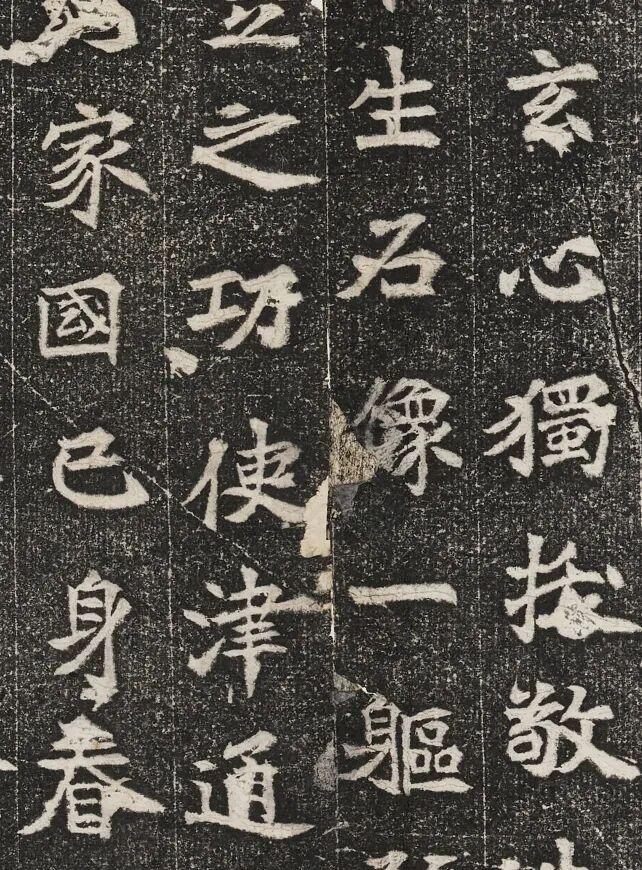 玄心獨拔敬
生石像一軀
之功使津通
家國己身眷